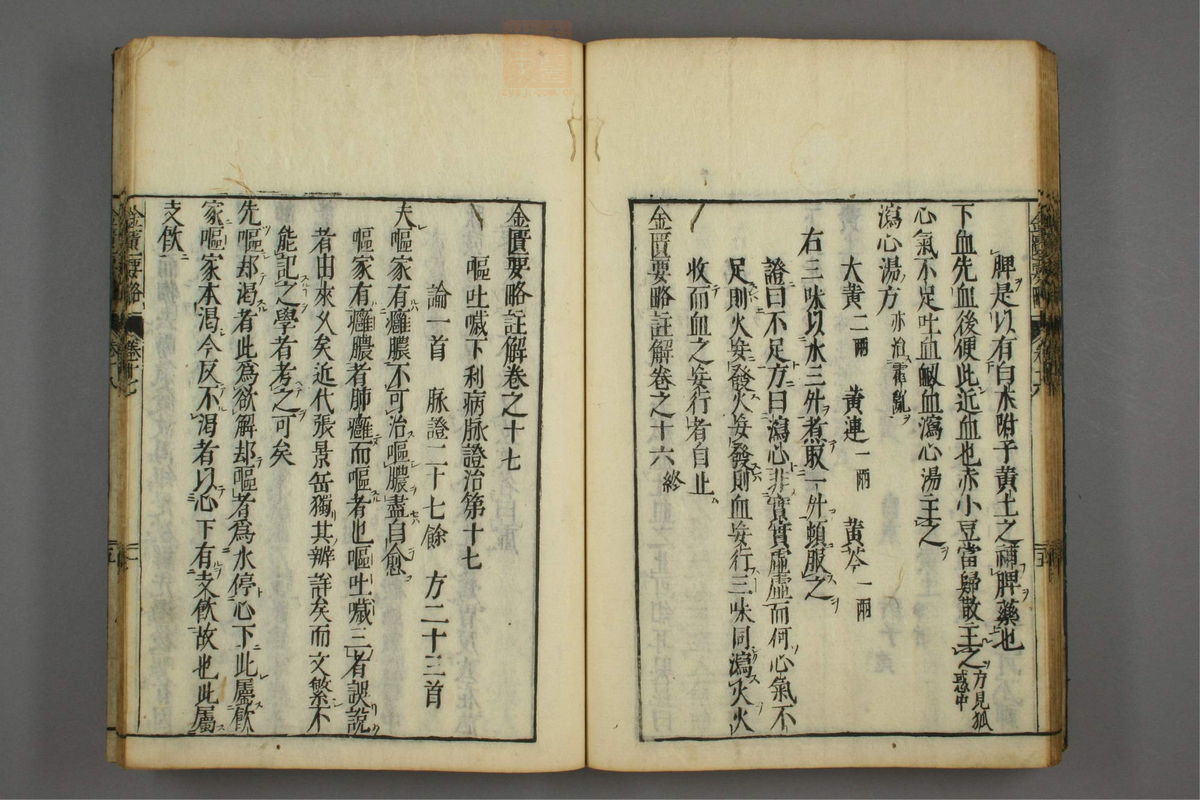 脾是以有白朮附子黃土之補脾藥也
下血先血後便此近血也赤小豆當歸散主之方見狐惑中
心氣不足吐血衂血瀉心湯主之
瀉心湯方亦治霍亂
大黃二兩　黃連一兩　黃芩一兩
右三味以水三升煮取一升頓服之
證曰不足方曰瀉心非實實虛虛而何心氣不
足則火妄發火妄發則血妄行三味同瀉火火
收而血之妄行者自止
金匱要略註解卷之十六終
金匱要略註解卷之十七
嘔吐噦下利病脉證治第十七
論一首　脉證二十七餘　方二十三首
夫嘔家有癰膿不可治嘔膿盡自愈
嘔家有癰膿者肺癰而嘔者也嘔吐噦三者誤說
者由來久矣近代張景岳獨其辨詳矣而文繁不
能記之學者考之可矣
先嘔却渴者此爲欲解却嘔者爲水停心下此屬飮
家嘔家本渴今反不渴者以心下有支飮故也此屬
支飮
金匱要略　卷十七